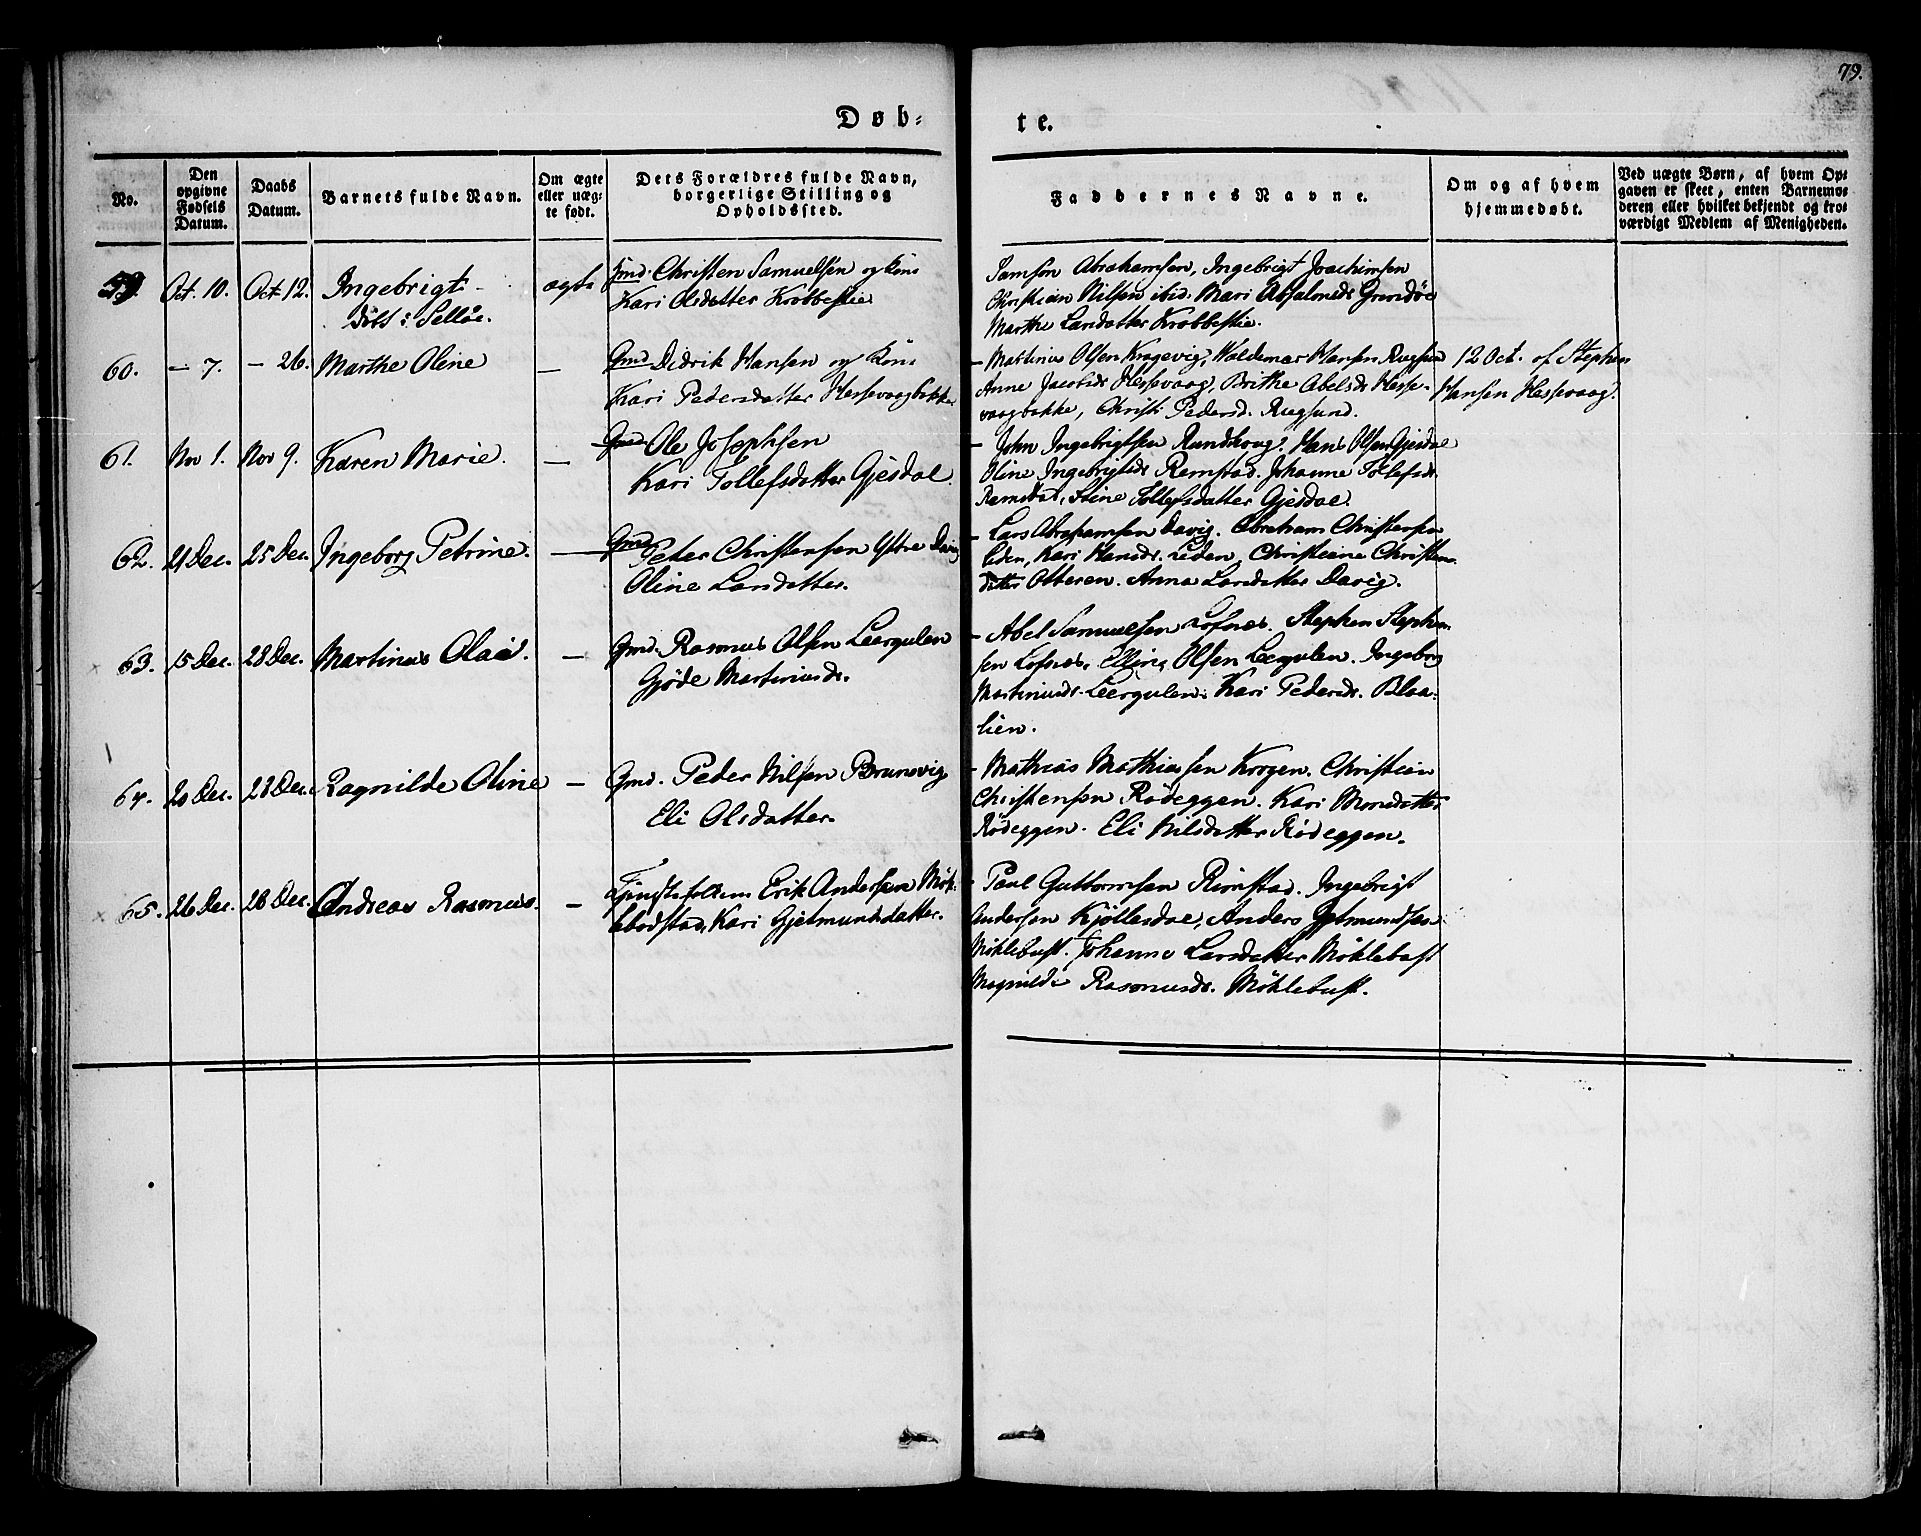 79.
Døb-
te.
No.
Den opgivne Fødsels Datum.
Daabs Datum.
Barnets fulde Navn.
Om ægte eller uæg-te født.
Dets Forældres fulde Navn, borgerlige Stilling og Opholdssted.
Faddernes Navne.
Om og af hvem hjemmedøbt.
Ved uægte Børn, af hvem Op-gaven er skeet, enten Barnemo-deren eller hvilket bekjendt og tro-værdigt Medlem af Menigheden.
59. Oct. 10. Oct 12. Ingebrigt
døbt i Selløe.
ægte
Gmd. Christen Samuelsen og Kone
Kari Olsdatter Krobbestie
Samson Abrahamsen, Ingebrigt Joachimsen
Christian Nilsen ibid. Mari Absalomsd. Grindøe
Marthe Larsdatter Krobbestie.
60. – 7. – 26. Marthe Oline –
Gmd. Didrik Hansen og Kone
Kari Pedersdatter Hessevaagbakke
– Martinus Olsen Kragevig, Waldemar Hansen Rugsund
Anne Jacobsd. Hessevaag, Brithe Abelsd. Hesse-
vaagbakke, Christi Pedersd. Rugsund.
12 Oct. af Stephen
Hansen Hessevaag.
61. Nov 1. Nov 9. Karen Marie. –
Gmd. Ole Josephsen
Kari Tollefsdatter Gjesdal
– John Ingebrigtsen Rundhoug, Hans Olsen Gjesdal
Oline Ingebrigtsd. Remstad. Johanne Tollefsd.
Remstad, Stine Tollefsdatter Gjesdal.
62. 21 Dec. 25 Dec. Ingeborg Petrine. –
Gmd. Peder Christensen Ystre Davig
Oline Larsdatter.
– Lars Abrahamsen Davig. Abraham Christensen
Leden, Kari Hansd. Leden, Christiane Christens-
datter Otteren. Anna Larsdatter Davig.
63. 15 Dec. 28 Dec. Martinus Olai. –
Gmd. Rasmus Olsen Leergulen
Gjøde Martinusd.
– Abel Samuelsen Lofnes. Stephen Stephen-
sen Lofnes, Elling Olsen Leergulen. Ingeborg
Martinusd. Leergulen. Kari Pedersd. Blaa-
lien.
64. 20 Dec. 28 Dec. Ragnilde Oline –
Gmd. Peder Nilsen Brunsvig
Eli Olsdatter.
– Mathias Mathiassen Krogen. Christian
Christensen Rødeggen. Kari Monsdatter
Rødeggen. Eli Nilsdatter Rødeggen.
65. 26 Dec. 28 Dec. Andreas Rasmus. –
Tjenestefolkene Erik Andersen Møk-
lebostad, Kari Gjetmundsdatter.
– Paul Guttormsen Rimstad. Ingebrigt
Andersen Kjøllesdal, Anders Gjetmundsen
Møklebust. Johanne Larsdatter Møklebust
Magnilde Rasmusd. Møklebust.